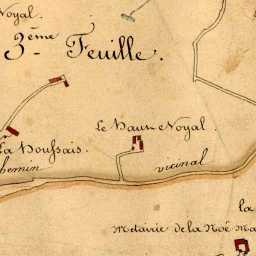 Noyal.
3ème Feuille.
Le Haut Noyal.
La Houssais.
chemin vicinal
la
Métairie de la Noë Ma